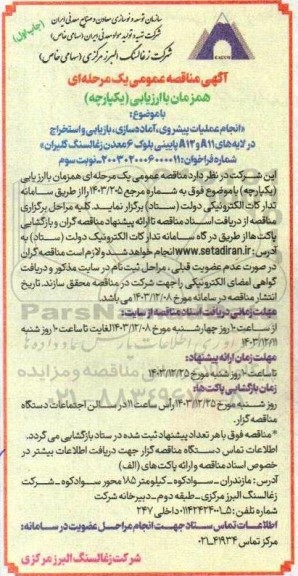 سازمان توسعه و نوسازی معادن و صنایع معدنی ایران
شرکت تهیه و تولید مواد معدنی ایران (سهامی خاص)
شرکت زغالسنگ البرز مرکزی (سهامی خاص)
(چاپ اول)
آگهی مناقصه عمومی یک مرحله‌ای
همزمان با ارزیابی (یکپارچه)
با موضوع:
«انجام عملیات پیشروی، آماده‌سازی، بازیابی و استخراج
در لایه‌های A11 و A12 پایینی بلوک ۶ معدن زغالسنگ گلیران»
شماره فراخوان: ۲۰۰۳۰۲۰۰۰۶۰۰۰۰۱۱ - نوبت سوم
این شرکت در نظر دارد مناقصه عمومی یک مرحله‌ای همزمان با ارزیابی
(یکپارچه) با موضوع فوق به شماره مرجع ۱۴۰۳/۲۰۵ را از طریق سامانه
تدارکات الکترونیکی دولت (ستاد) برگزار نماید. کلیه مراحل برگزاری
مناقصه از دریافت اسناد مناقصه تا ارائه پیشنهاد مناقصه گران و بازگشایی
پاکت‌ها از طریق درگاه سامانه تدارکات الکترونیک دولت (ستاد) به
آدرس: www.setadiran.ir انجام خواهد شد و لازم است مناقصه گران
در صورت عدم عضویت قبلی، مراحل ثبت نام در سایت مذکور و دریافت
گواهی امضای الکترونیکی را جهت شرکت در مناقصه محقق سازند. تاریخ
انتشار مناقصه در سامانه مورخ ۱۴۰۳/۱۲/۰۸ می باشد.
مهلت زمانی دریافت اسناد مناقصه از سایت:
از ساعت ۱۰ روز چهارشنبه مورخ ۱۴۰۳/۱۲/۰۸ لغایت تا ساعت ۱۰ روز شنبه
۱۴۰۳/۱۲/۱۱
مهلت زمان ارائه پیشنهاد:
تا ساعت ۱۰ روز شنبه مورخ ۱۴۰۳/۱۲/۲۵
زمان بازگشایی پاکت‌ها:
روز شنبه مورخ ۱۴۰۳/۱۲/۲۵ رأس ساعت ۱۱ در سالن اجتماعات دستگاه
مناقصه گزار.
* مناقصه فوق با هر تعداد پیشنهاد ثبت شده در ستاد بازگشایی می گردد.
اطلاعات تماس دستگاه مناقصه گزار جهت دریافت اطلاعات بیشتر در
خصوص اسناد مناقصه و ارائه پاکت های (الف)
آدرس: مازندران - سوادکوه - کیلومتر ۱۸۵ محور سوادکوه - شرکت
زغالسنگ البرز مرکزی - طبقه دوم - دبیرخانه شرکت
شماره تلفن: ۵-۰۱۱۴۲۴۲۴۰۰۱ داخلی ۲۴۷
اطلاعات تماس ستاد جهت انجام مراحل عضویت در سامانه:
مرکز تماس ۴۱۹۳۴-۰۲۱
شرکت زغالسنگ البرز مرکزی